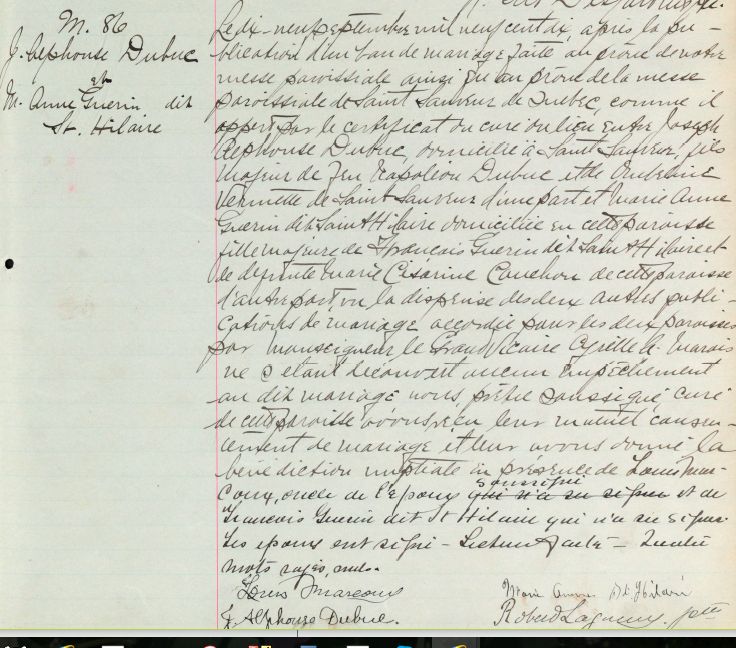 M. 86
J. Alphonse Dubuc
et
M. Anne Guerin dit
St. Hilaire
Le dix-neuf septembre mil neuf cent dix, après la pu-
blication d'un ban de mariage faite au prône de notre
messe paroissiale ainsi qu'au prône de la messe
paroissiale de Saint Sauveur de Québec, comme il
appert par le certificat du curé du lieu entre Joseph
Alphonse Dubuc, domicilié à Saint Sauveur, fils
majeur de feu Napoléon Dubuc et de Ombeline
Vermette de Saint Sauveur d'une part et Marie Anne
Guerin dit Saint Hilaire domiciliée en cette paroisse
fille majeure de François Guerin dit Saint Hilaire et
de défunte Marie Césarine Couchon de cette paroisse
d'autre part vu la dispense des deux autres publi-
cations de mariage accordée pour les deux paroisses
par monseigneur le Grand Vicaire Cyrille A. Marois
ne s'étant découvert aucun empêchement
au dit mariage nous, prêtre soussigné, curé
de cette paroisse avons reçu leur mutuel consen-
tement de mariage et leur avons donné la
bénédiction nuptiale en présence de Louis Mar-
soussigné
coux, oncle de l'époux qui n'a su signer et de
François Guerin dit St Hilaire qui n'a su signer.
Les époux ont signé - Lecture faite -
mots rayés nuls.
Louis Marcoux
J. Alphonse Dubuc.
Marie Anne St. Hilaire
Robert Lagueux, ptre